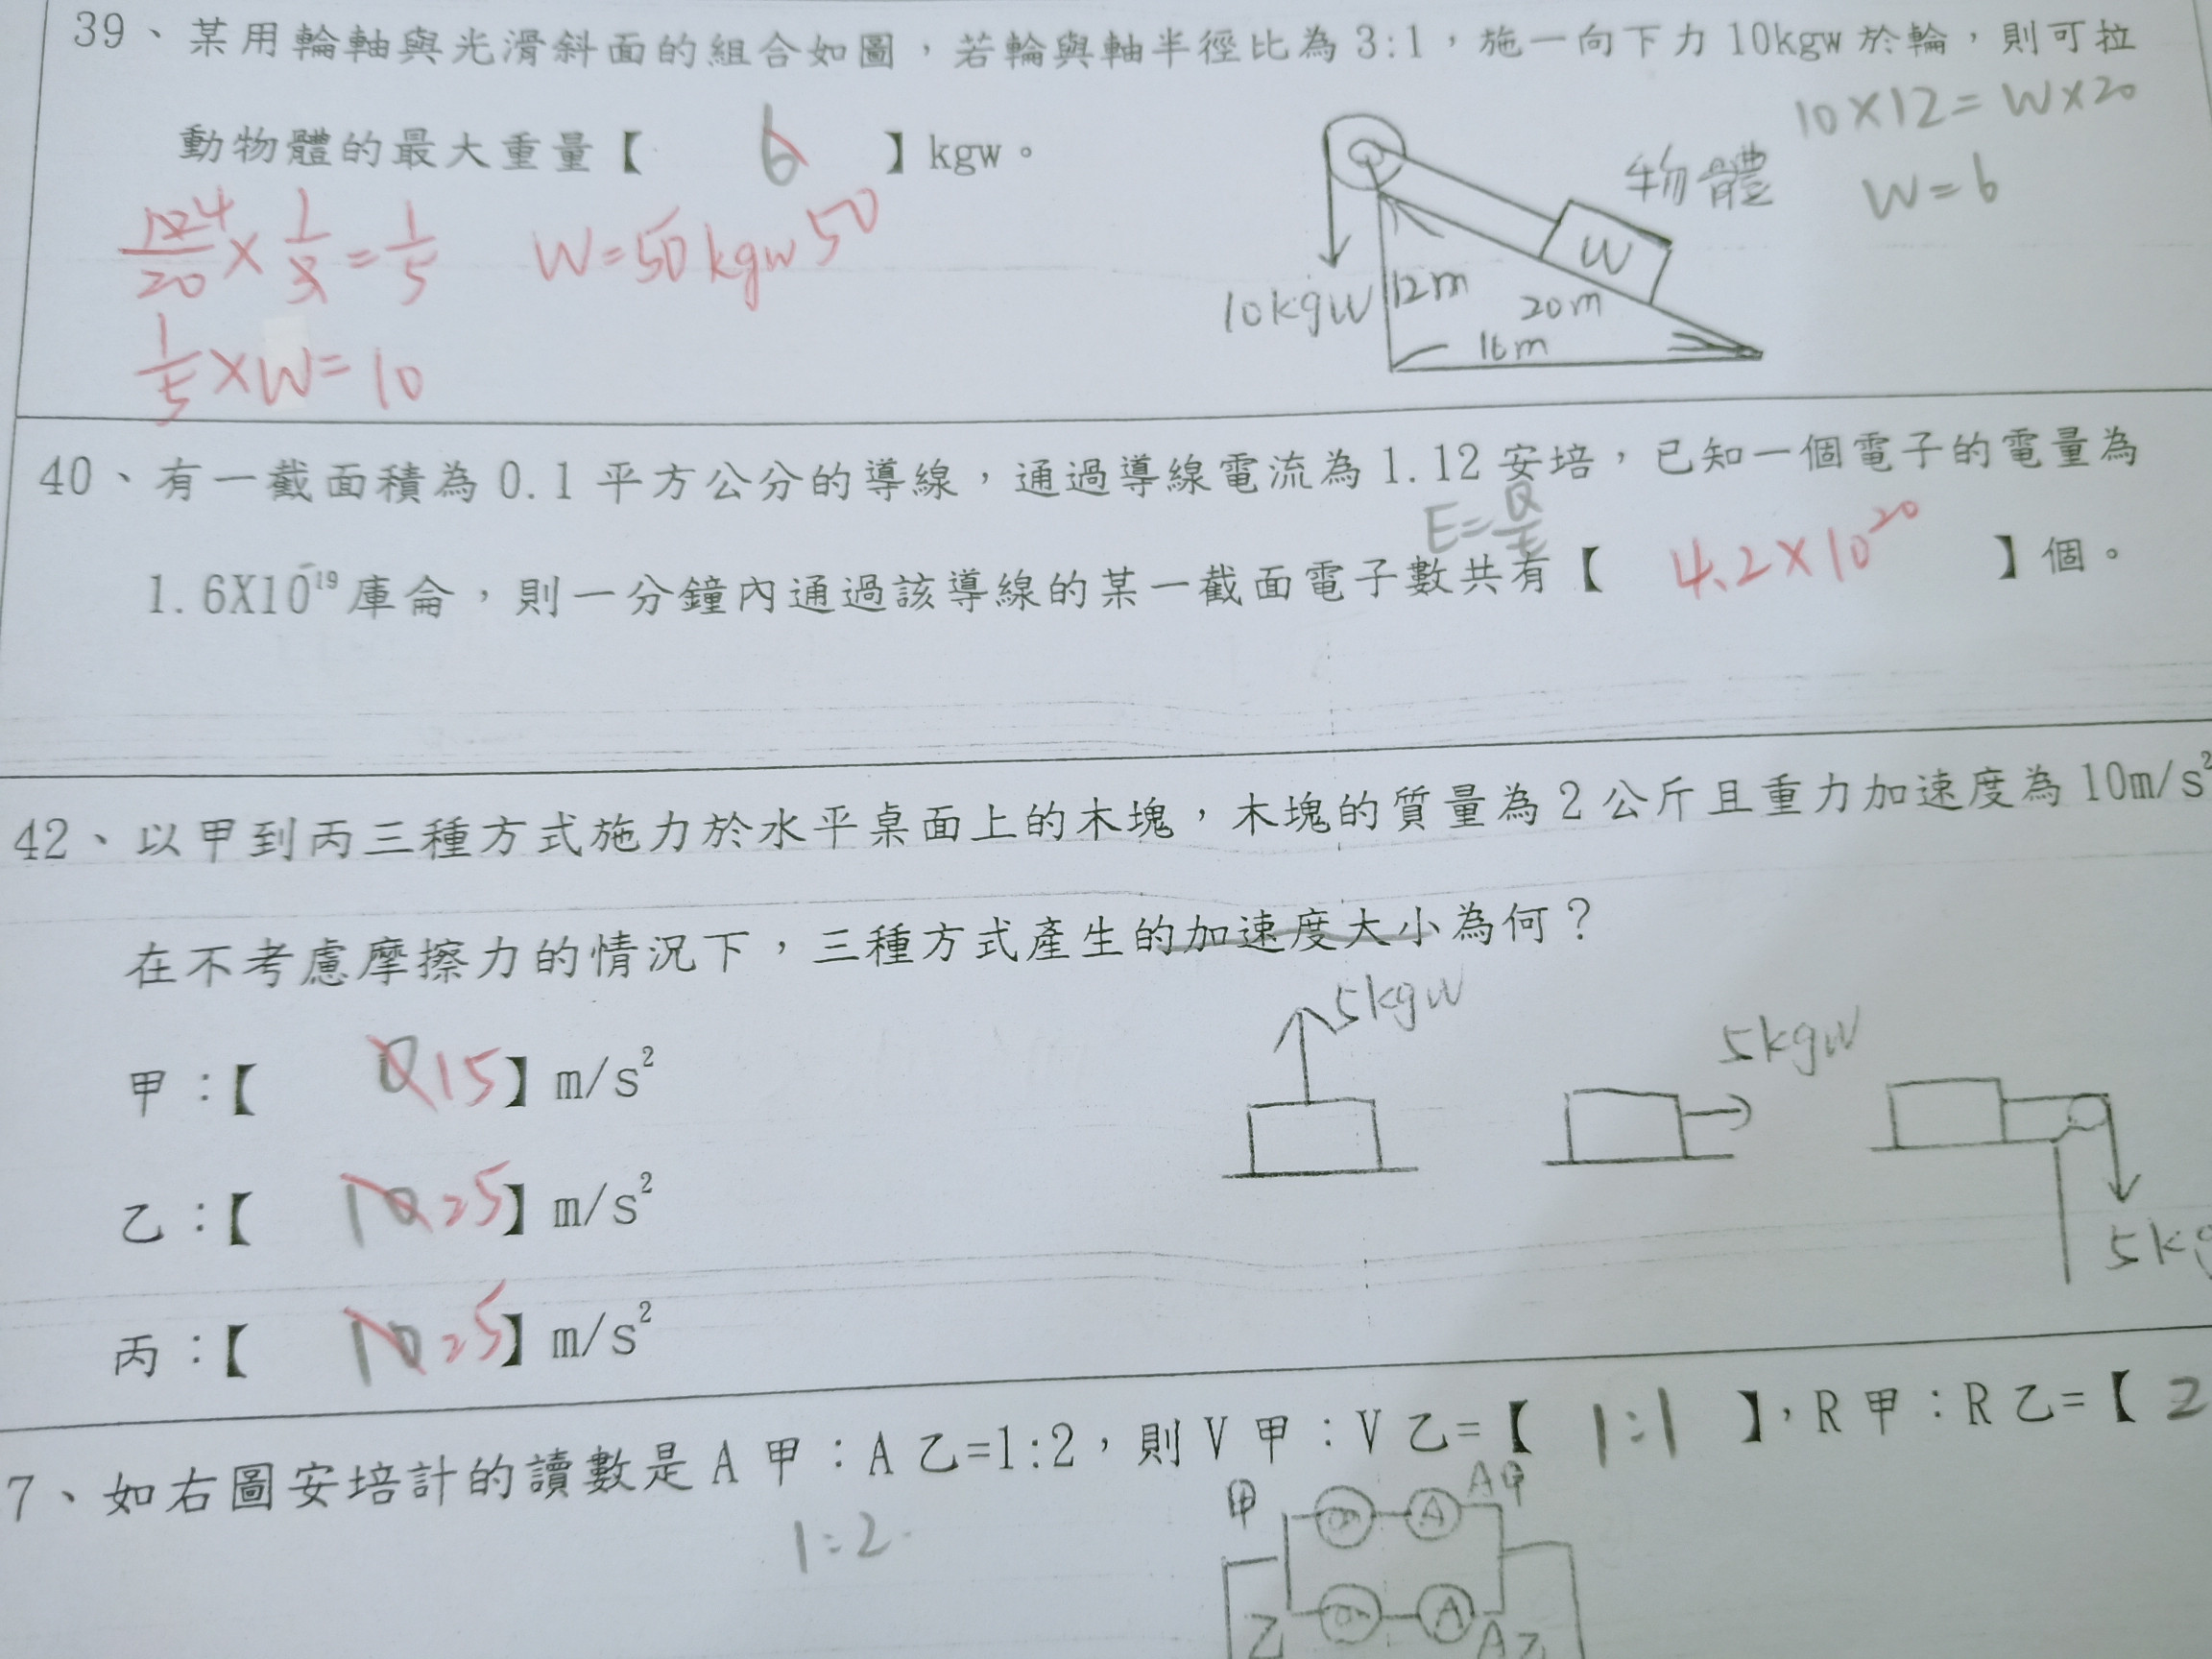 39、某用輪軸與光滑斜面的組合如圖，若輪與軸半徑比為3:1，施一向下力10kgw於輪，則可拉
動物體的最大重量【 6 】kgw。
10×12=W×20
W=6
物體
W
10kgw
12m
20m
16m
12 4/20 × 1/3 = 1/5
W=50kgw 50
1/5 ×W=10
40、有一截面積為0.1平方公分的導線，通過導線電流為1.12安培，已知一個電子的電量為
E=Q/t
1.6X10⁻¹⁹庫侖，則一分鐘內通過該導線的某一截面電子數共有【 4.2×10²⁰ 】個。
42、以甲到丙三種方式施力於水平桌面上的木塊，木塊的質量為2公斤且重力加速度為10m/s²
在不考慮摩擦力的情況下，三種方式產生的加速度大小為何？
5kgw
5kgw
5kg
甲：【 0 15】m/s²
乙：【 10 25】m/s²
丙：【 10 25】m/s²
7、如右圖安培計的讀數是A甲：A乙=1:2，則V甲：V乙=【 1:1 】，R甲：R乙=【 2
1:2
甲
A
A甲
乙
A
A乙